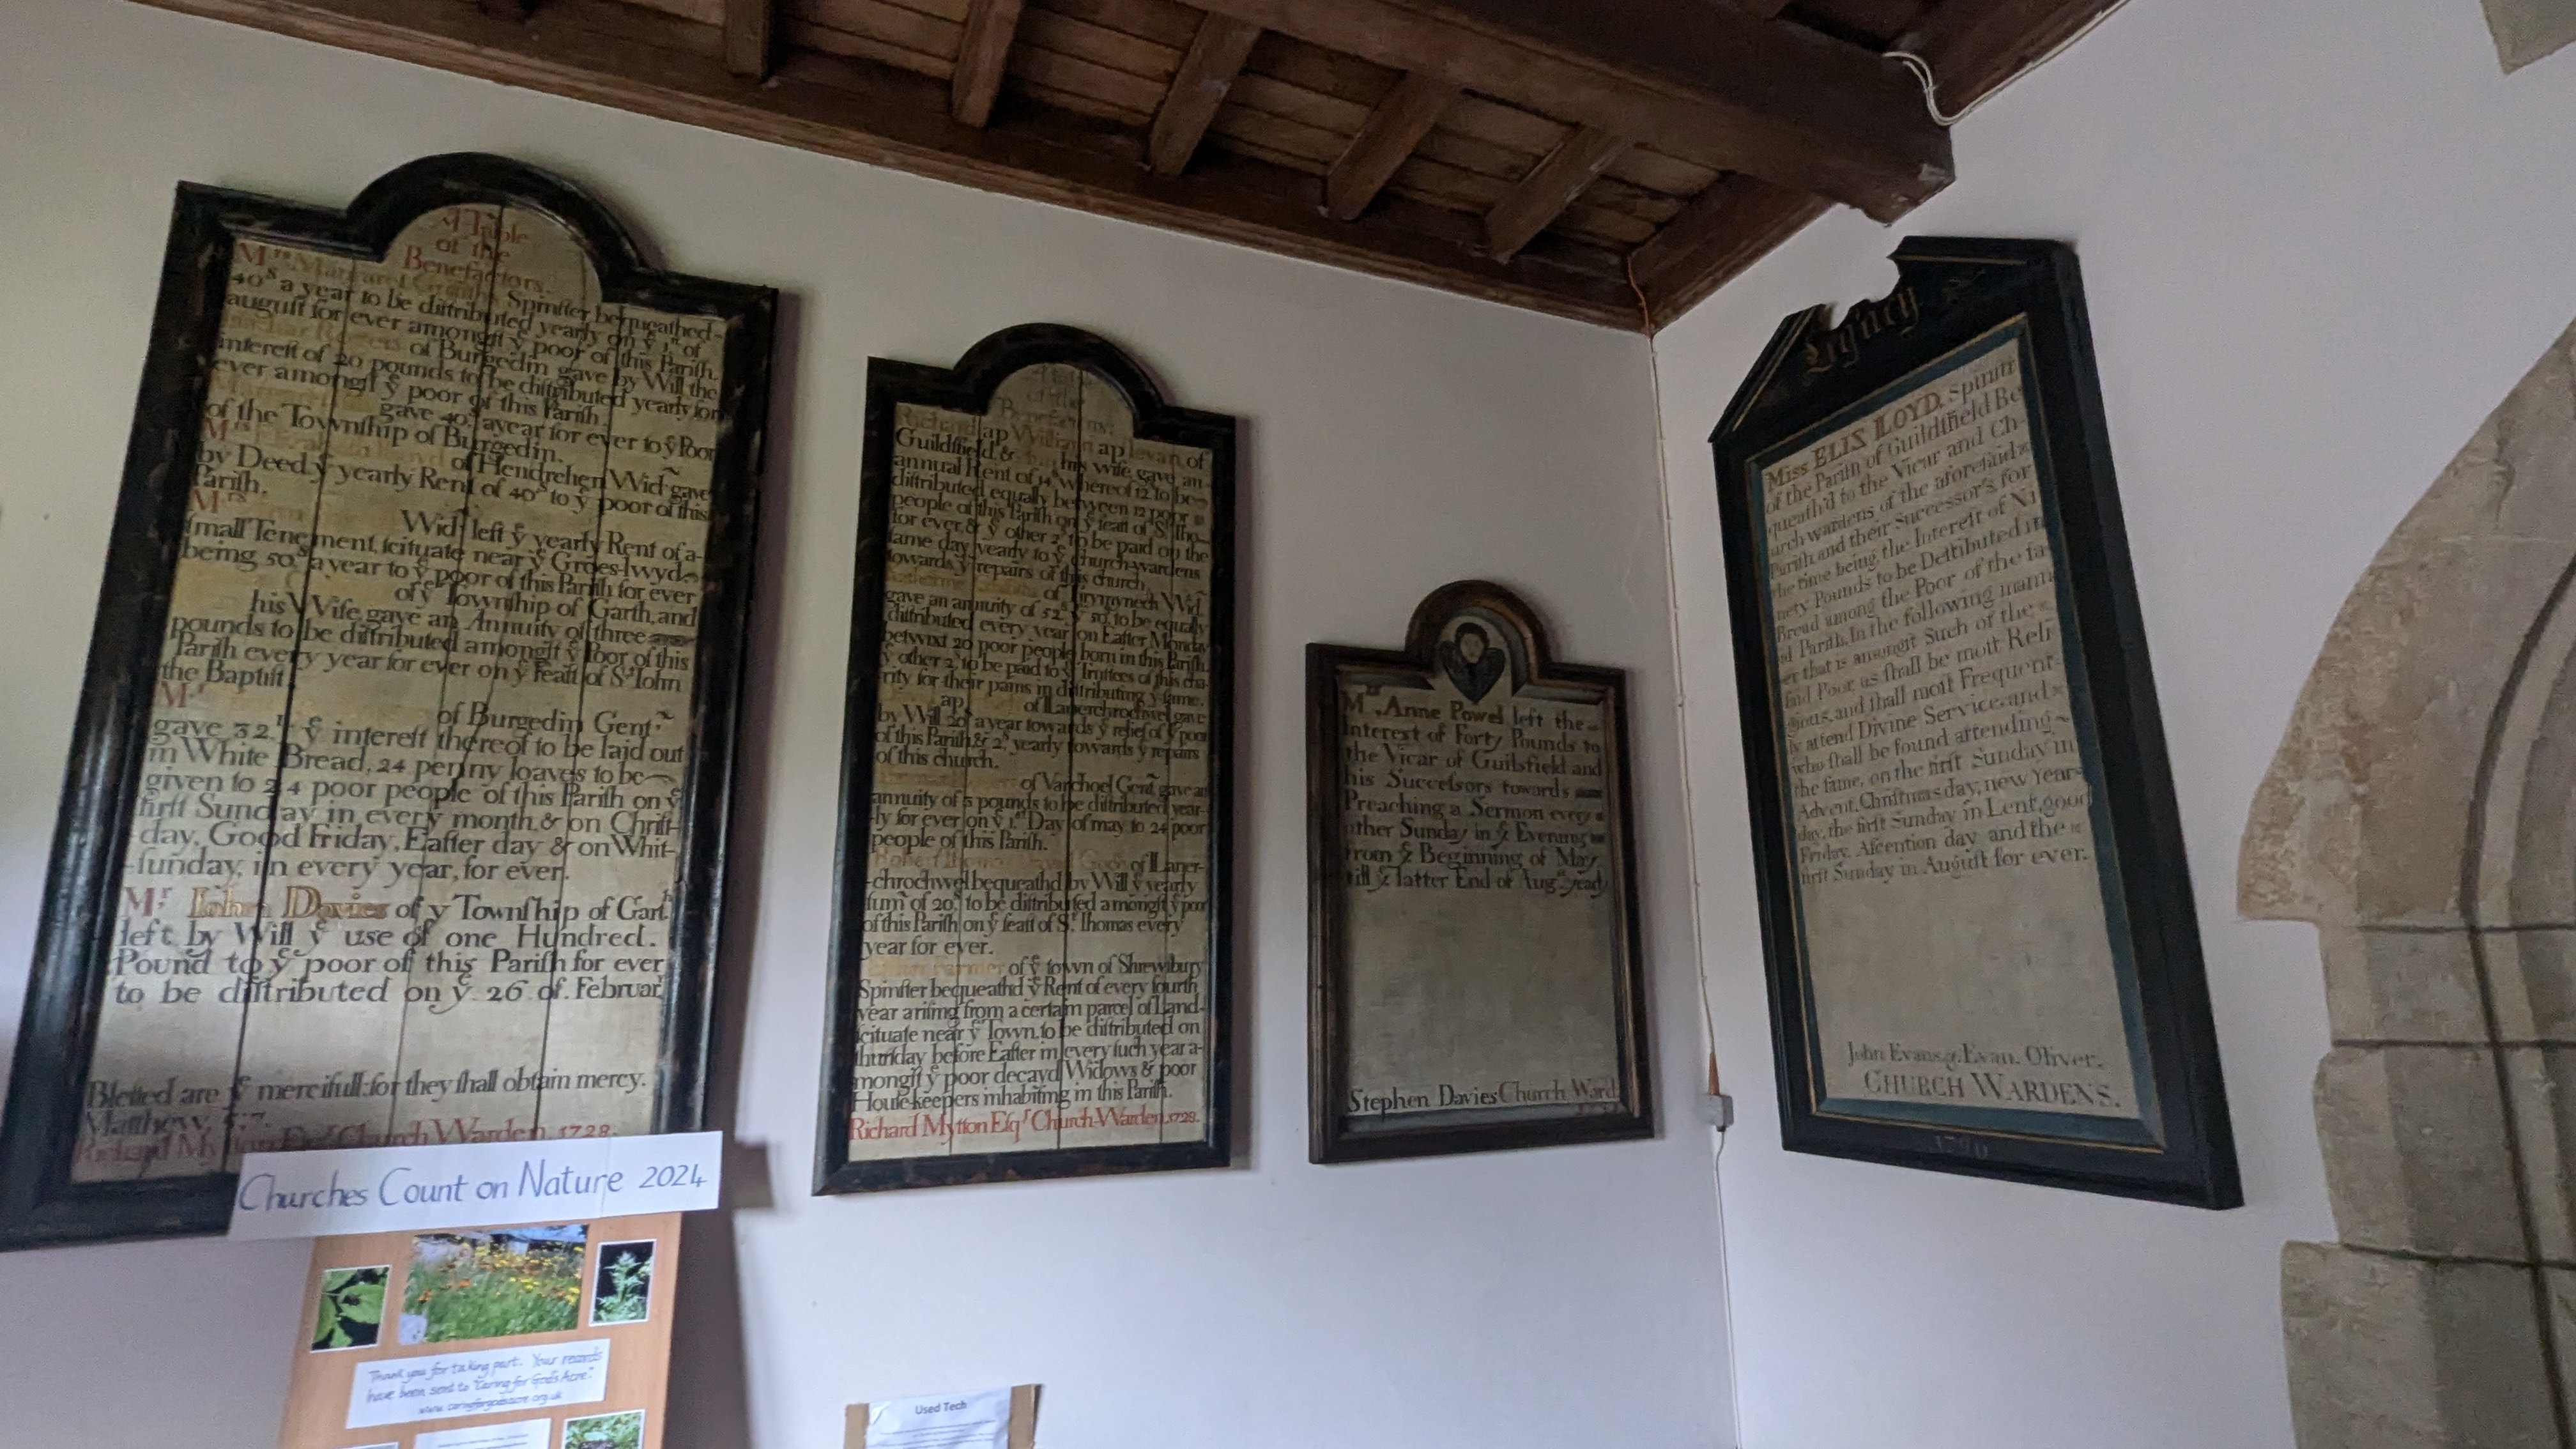 Table
of the
Benefactors.
Mrs Margaret Griffiths Spinſter bequeathed-
40s a year to be diſtributed yearly on ye 1st of
auguſt for ever amongſt ye poor of this Pariſh.
of Burgedin gave by Will the
intereſt of 20 pounds to be diſtributed yearly for
ever amongſt ye poor of this Pariſh.
gave 40s ayear for ever to ye Poor
of the Townſhip of Burgedin.
Mrs of Hendrehen Wid gave
by Deed ye yearly Rent of 40s to ye poor of this
Pariſh.
Mrs
Wid left ye yearly Rent of a-
ſmall Tenement ſcituate near ye Groes-lwyd
being 50s a year to ye poor of this Pariſh for ever
of ye Townſhip of Garth, and
his Wife gave an Annuity of three
pounds to be diſtributed amongſt ye Poor of this
Pariſh every year for ever on ye feaſt of St John
the Baptiſt.
Mr
of Burgedin Gent
gave 32 ye intereſt thereof to be laid out
in White Bread, 24 penny loaves to be
given to 24 poor people of this Pariſh on ye
firſt Sunday in every month & on Chriſt-
day, Good Friday, Eaſter day & on Whit-
-ſunday, in every year, for ever.
Mr Iohn Davies of y Townſhip of Gart
left by Will ye use of one Hundred.
Pound to ye poor of this Pariſh for ever
to be diſtributed on ye 26 of Februar
Bleſſed are ye mercifull: for they ſhall obtain mercy.
Matthew. 5.7.
Richard Mytton Eſqr Church Warden. 1728.
Churches Count on Nature 2024
Thank you for taking part. Your records
have been sent to "Caring for God's Acre"
www.caringforgodsacre.org.uk
of the
Benefactors.
Richard ap William ap Ievan, of
Guildſfield, & his wife, gave, an-
annual Rent of 14s whereof 12 to be
diſtributed equally between 12 poor
people of this Pariſh on ye feaſt of St Tho-
for ever & ye other 2s to be paid on the
ſame day yearly to ye Church-wardens
towards ye repairs of this church.
Katherine of Wid
gave an annuity of 52s ye 50, to be equally
diſtributed every year on Eaſter Monday
betwixt 20 poor people born in this Pariſh
ye other 2s to be paid to ye Truſtees of this cha-
rity for their pains in diſtributing ye ſame.
ap of Lanerchrochwel gave
by Will 20s a year towards ye relief of ye poor
of this Pariſh & 2s yearly towards ye repairs
of this church.
of Varchoel Gent gave an
annuity of 5 pounds to be diſtributed year-
-ly for ever on ye 1st Day of may to 24 poor
people of this Pariſh.
of Llaner-
-chrochwel bequeathd by Will ye yearly
ſum of 20s to be diſtributed amongſt ye poor
of this Pariſh on ye feaſt of St Thomas every
year for ever.
Farmer of ye town of Shrewſbury
Spinſter bequeathd ye Rent of every fourth
year ariſing from a certain parcel of Land-
ſcituate near ye Town, to be diſtributed on
thurſday before Eaſter in every ſuch year a-
mongſt ye poor decayd Widows & poor
Houſe-keepers inhabiting in this Pariſh.
Richard Mytton Eſqr Church-Warden. 1728.
Used Tech
Mrs Anne Powel left the
Interest of Forty Pounds to
the Vicar of Guilsfield and
his Succeſsors towards
Preaching a Sermon every
other Sunday in ye Evening
from ye Beginning of May
till ye latter End of Augst yearly
Stephen Davies Church Ward
Legacy
Miss ELIZ LLOYD, Spinſtr
of the Pariſh of Guildſfield Be
queath'd to the Vicar and Ch-
urch wardens of the aforeſaid
Pariſh and their Successor's for
the time being, the Intereſt of Ni
nety Pounds to be Deſtributed in
Bread among the Poor of the ſa
id Pariſh, In the following mann
er that is amongſt Such of the
ſaid Poor, as ſhall be moſt Reli
gious, and ſhall moſt Frequent-
ly attend Divine Service, and
who ſhall be found attending
the ſame, on the firſt Sunday in
Advent, Chriſtmas day, new Years
day, the firſt Sunday in Lent, good
Friday, Aſcention day and the
firſt Sunday in Auguſt for ever.
John Evans, & Evan Oliver.
CHURCH WARDENS.